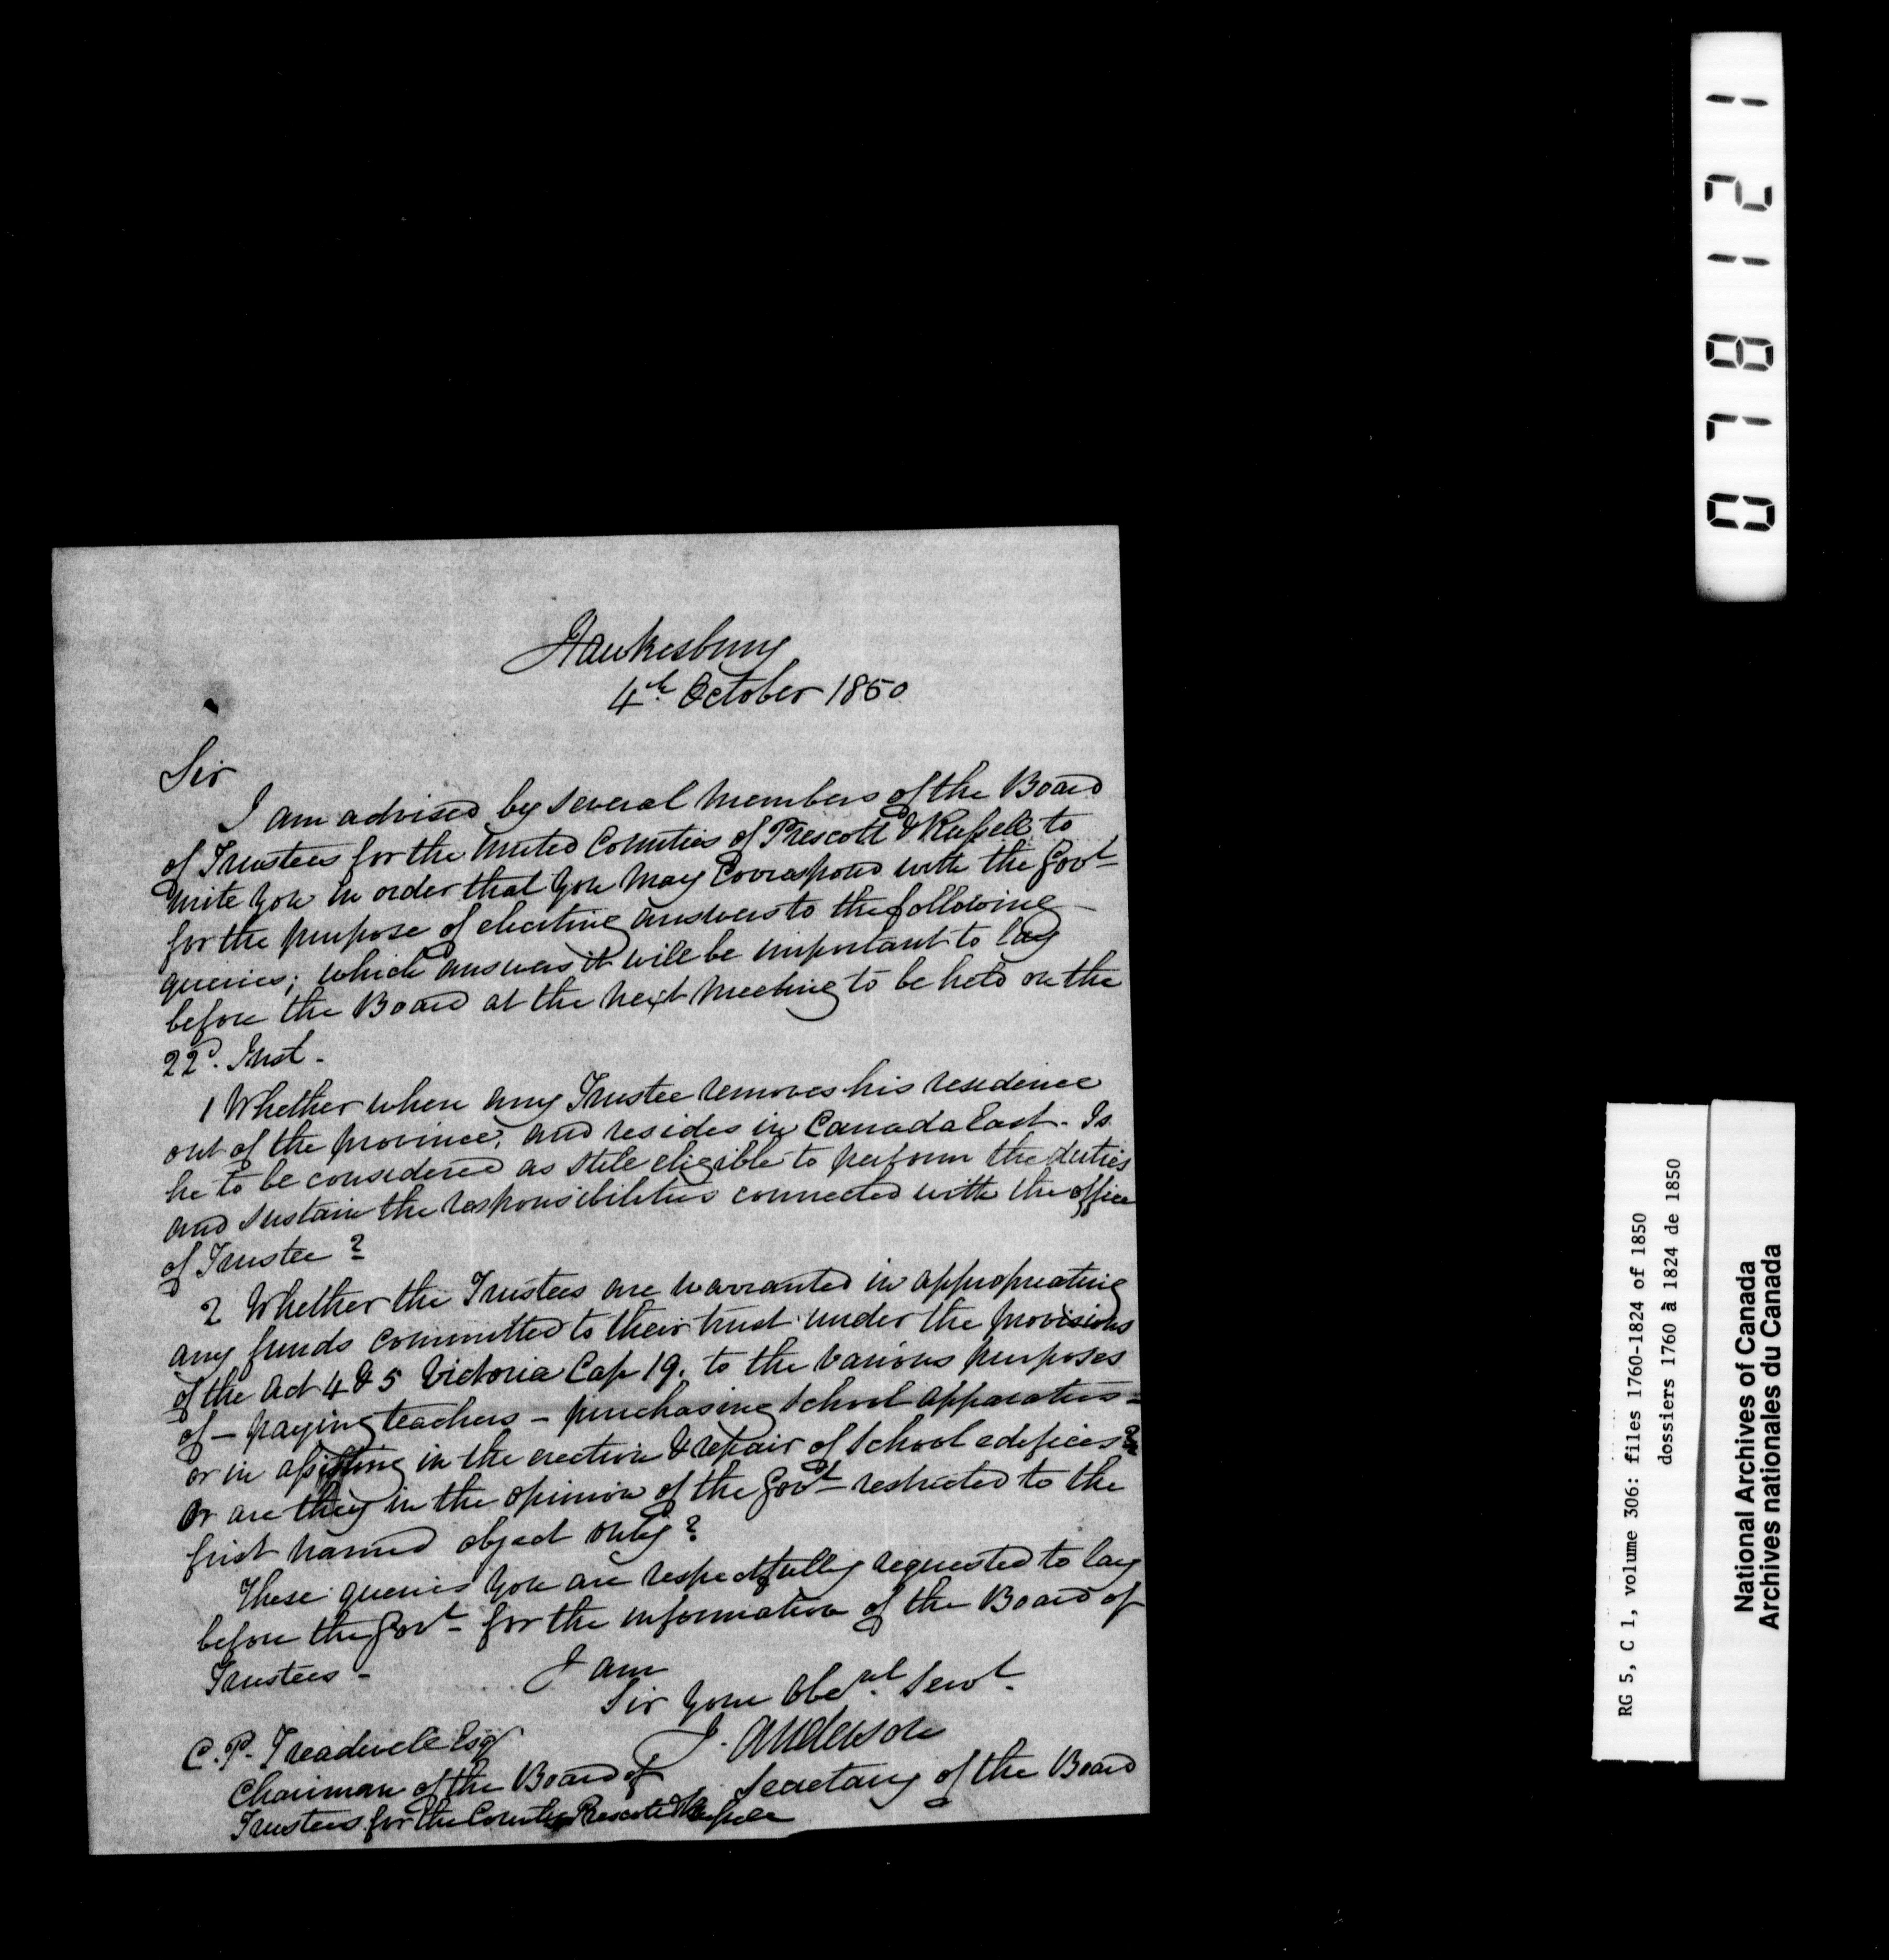 Hawkesbury
4th October 1850
Sir
I am advised by several members of the Board
of Trustees for the united Counties of Prescott & Russell to
write you in order that you may correspond with the Govt
for the purpose of eliciting answers to the following
queries; which answers it will be important to lay
before the Board at the next meeting to be held on the
22d. Inst.
1 Whether when any Trustee removes his residence
out of the province, and resides in Canada East. Is
he to be considered as still eligible to perform the duties
and sustain the responsibilities connected with the office
of Trustee?
2 Whether the Trustees are warranted in appropriating
any funds committed to their trust under the provisions
of the Act 4 & 5 Victoria Cap 19. to the various purposes
of - paying teachers - purchasing school apparatus -
or in assisting in the erection & repair of school edifices?
or are they in the opinion of the Govt restricted to the
first named object only?
These queries you are respectfully requested to lay
before the Govt for the information of the Board of
Trustees -
I am
Sir your Obednt. Servt.
J. Anderson
Secretary of the Board
C. P. Treadwell Esqr
Chairman of the Board of
Trustees for the Counties Prescott & Russell
078121
RG 5, C 1, volume 306: files 1760-1824 of 1850
dossiers 1760 à 1824 de 1850
National Archives of Canada
Archives nationales du Canada